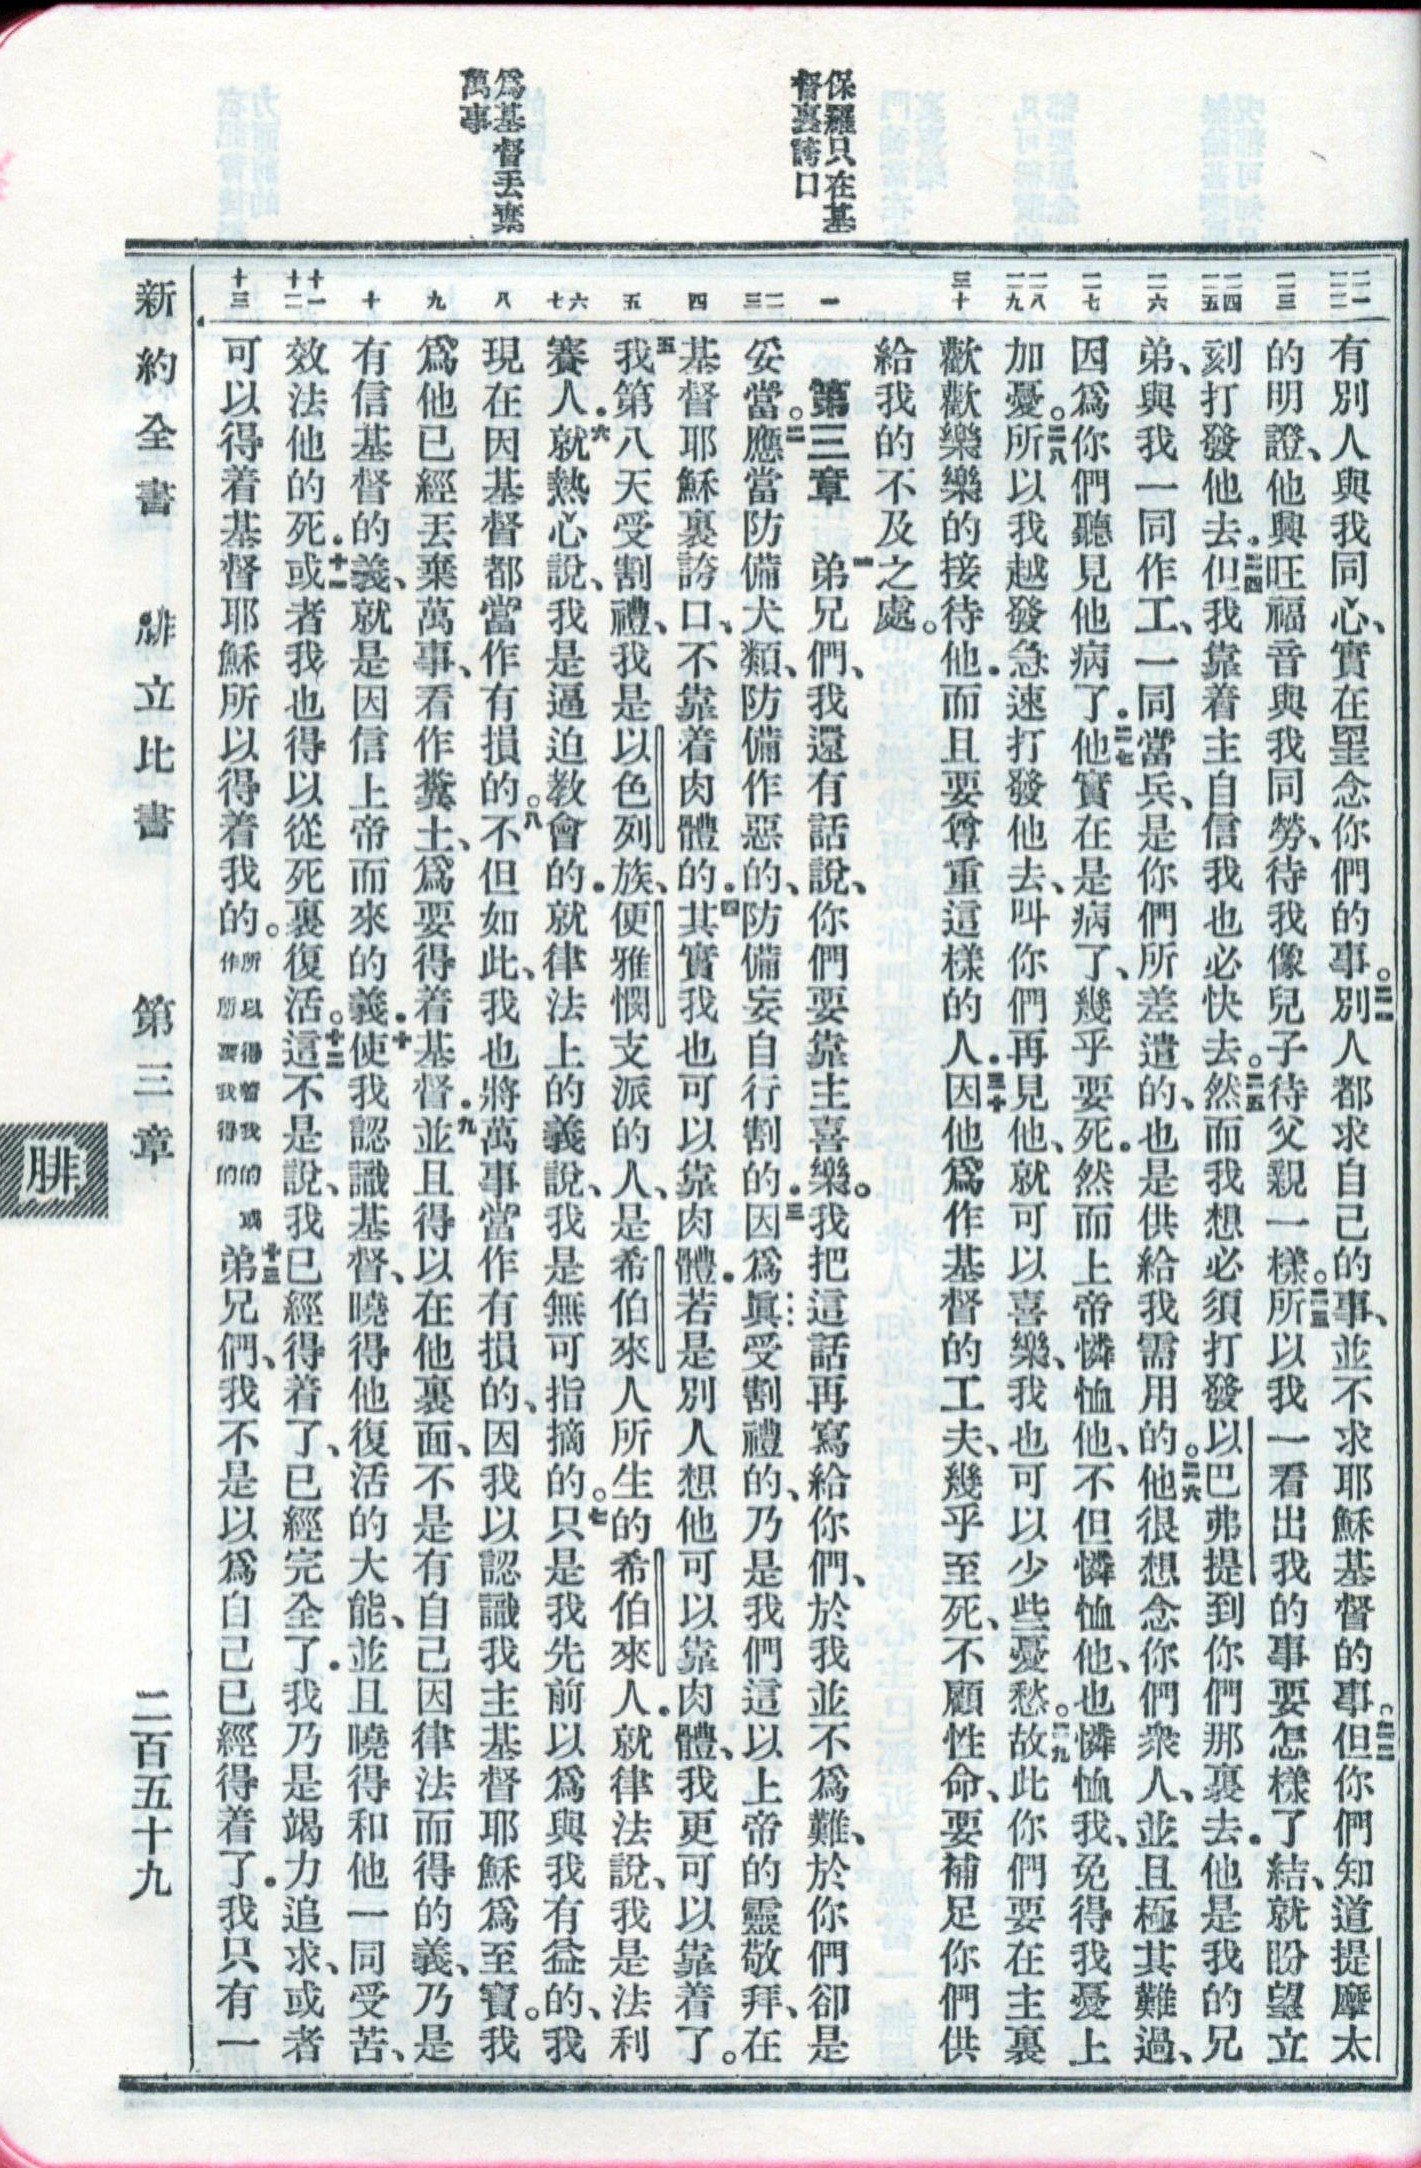 保羅只在基
督裏誇口
爲基督丟棄
萬事
二一
二二
二三
二四
二五
二六
二七
二八
二九
三十
一
二
三
四
五
六
七
八
九
十
十一
十二
十三
有別人與我同心、實在罣念你們的事。二一別人都求自己的事、並不求耶穌基督的事。二二但你們知道提摩太
的明證、他興旺福音與我同勞、待我像兒子待父親一樣。二三所以我一看出我的事要怎樣了結、就盼望立
刻打發他去．二四但我靠着主自信我也必快去。二五然而我想必須打發以巴弗提到你們那裏去．他是我的兄
弟、與我一同作工、一同當兵、是你們所差遣的、也是供給我需用的。二六他很想念你們衆人、並且極其難過、
因爲你們聽見他病了．二七他實在是病了、幾乎要死．然而上帝憐恤他、不但憐恤他、也憐恤我、免得我憂上
加憂。二八所以我越發急速打發他去、叫你們再見他、就可以喜樂、我也可以少些憂愁。二九故此你們要在主裏
歡歡樂樂的接待他．而且要尊重這樣的人．三十因他爲作基督的工夫、幾乎至死、不顧性命、要補足你們供
給我的不及之處。
第三章　一弟兄們、我還有話說、你們要靠主喜樂。我把這話再寫給你們、於我並不爲難、於你們卻是
妥當。二應當防備犬類、防備作惡的、防備妄自行割的．三因爲眞受割禮的、乃是我們這以上帝的靈敬拜、在
基督耶穌裏誇口、不靠着肉體的．四其實我也可以靠肉體．若是別人想他可以靠肉體、我更可以靠着了。
五我第八天受割禮、我是以色列族、便雅憫支派的人、是希伯來人所生的希伯來人．就律法說、我是法利
賽人．六就熱心說、我是逼迫教會的．就律法上的義說、我是無可指摘的。七只是我先前以爲與我有益的、我
現在因基督都當作有損的。八不但如此、我也將萬事當作有損的、因我以認識我主基督耶穌爲至寶。我
爲他已經丟棄萬事、看作糞土、爲要得着基督．九並且得以在他裏面、不是有自己因律法而得的義、乃是
有信基督的義、就是因信上帝而來的義．十使我認識基督、曉得他復活的大能、並且曉得和他一同受苦、
效法他的死．十一或者我也得以從死裏復活。十二這不是說、我已經得着了、已經完全了．我乃是竭力追求、或者
可以得着基督耶穌所以得着我的。所以得着我的或作所要我得的十三弟兄們、我不是以爲自己已經得着了．我只有一
新約全書　腓立比書　第三章　二百五十九
腓